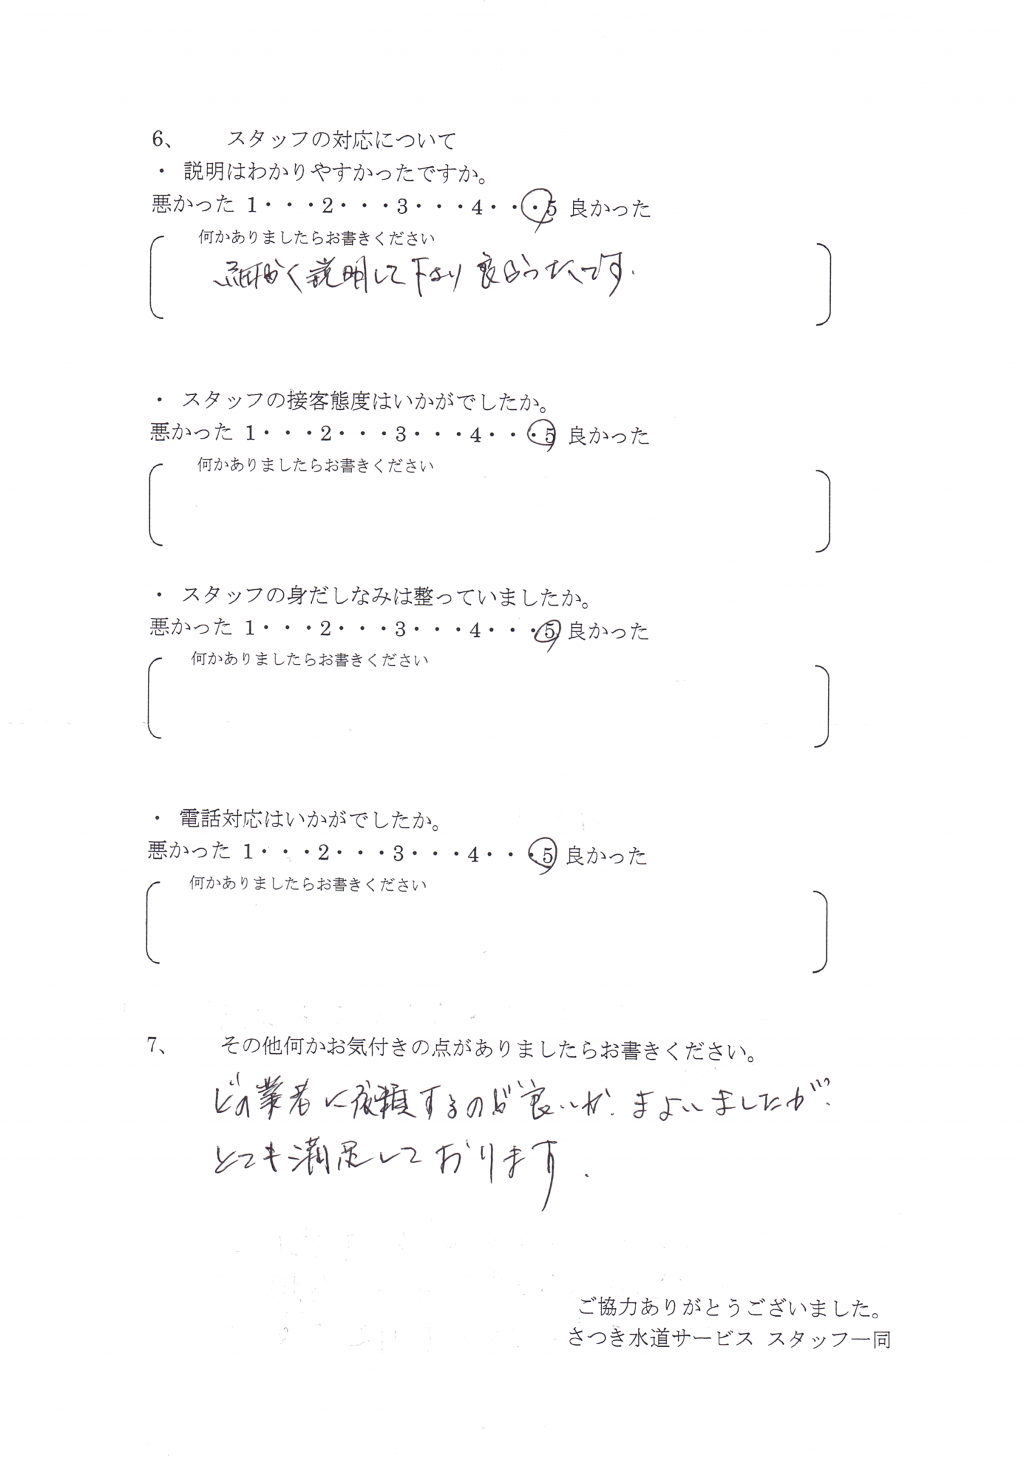 6、　スタッフの対応について
・ 説明はわかりやすかったですか。
悪かった 1・・・2・・・3・・・4・・・5 良かった
何かありましたらお書きください
細かく説明して下さり良かったです.
・ スタッフの接客態度はいかがでしたか。
悪かった 1・・・2・・・3・・・4・・・5 良かった
何かありましたらお書きください
・ スタッフの身だしなみは整っていましたか。
悪かった 1・・・2・・・3・・・4・・・5 良かった
何かありましたらお書きください
・ 電話対応はいかがでしたか。
悪かった 1・・・2・・・3・・・4・・・5 良かった
何かありましたらお書きください
7、　その他何かお気付きの点がありましたらお書きください。
どの業者に依頼するのが良いか、まよいましたが、
とても満足しております.
ご協力ありがとうございました。
さつき水道サービス スタッフ一同